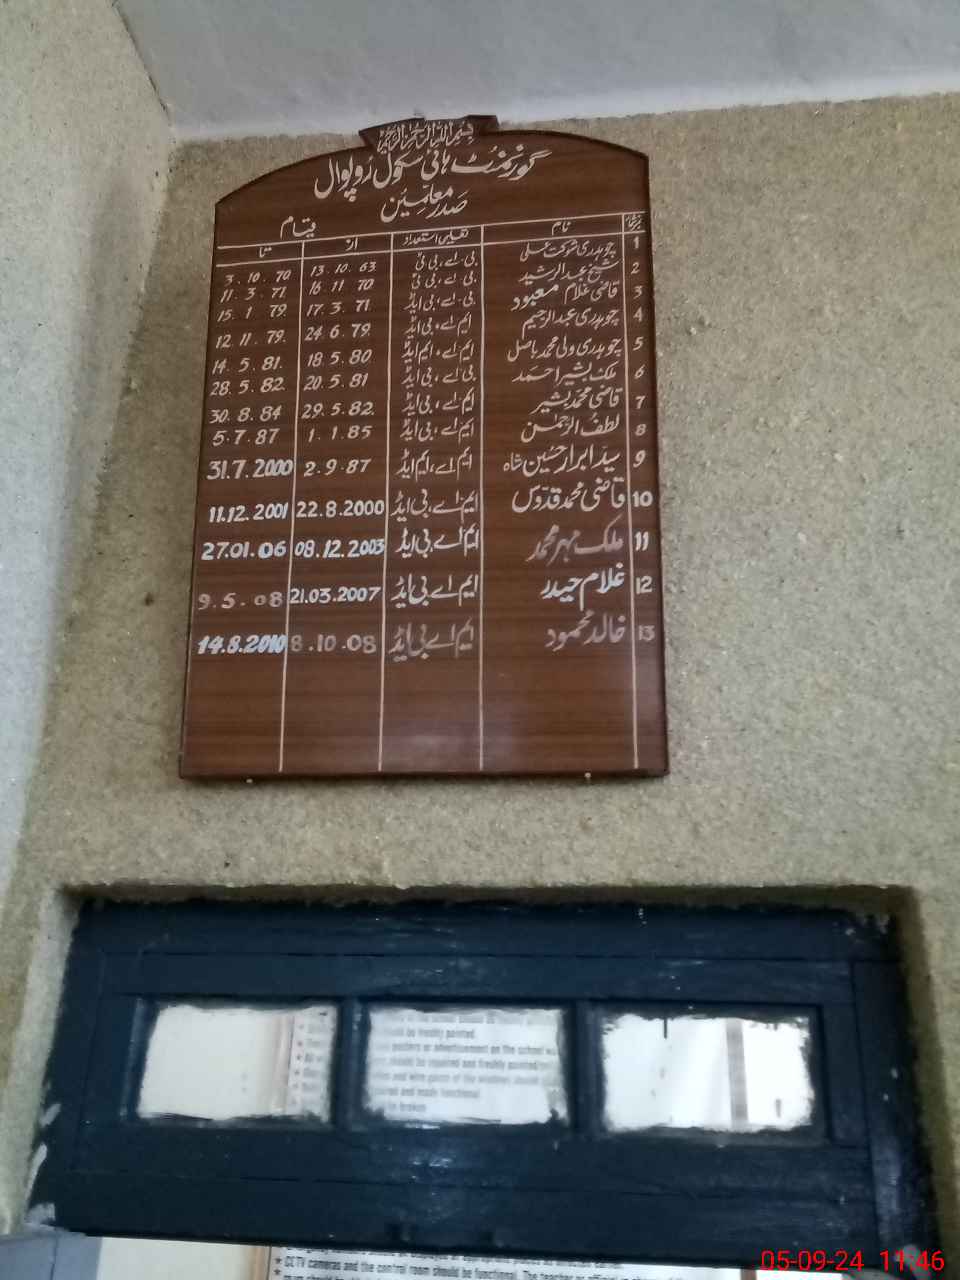 بسم اللہ الرحمن الرحیم
گورنمنٹ ہائی سکول روپوال
صدر معلمین
نمبر شمار نام تعلیمی استعداد قیام
از تا
1 چوہدری شوکت علی بی۔اے، بی ٹی 13.10.63 3.10.70
2 شیخ عبدالرشید بی۔اے، بی ٹی 16.11.70 11.3.71
3 قاضی غلام معبود بی۔اے، بی ایڈ 17.3.71 15.1.79
4 چوہدری عبدالرحیم ایم اے، بی ایڈ 24.6.79 12.11.79.
5 چوہدری ولی محمد باصل ایم اے، ایم ایڈ 18.5.80 14.5.81.
6 ملک بشیر احمد بی اے، بی ایڈ 20.5.81 28.5.82.
7 قاضی محمد بشیر ایم اے، بی ایڈ 29.5.82. 30.8.84
8 لطف الرحمن ایم اے، بی ایڈ 1.1.85 5.7.87
9 سید ابرار حسین شاہ ایم اے، ایم ایڈ 2.9.87 31.7.2000
10 قاضی محمد قدوس ایم اے، بی ایڈ 22.8.2000 11.12.2001
11 ملک مہر محمد ایم اے، بی ایڈ 08.12.2003 27.01.06
12 غلام حیدر ایم اے بی ایڈ 21.03.2007 9.5.08
13 خالد محمود ایم اے بی ایڈ 8.10.08 14.8.2010
be freshly painted.
posters or advertisement on the school
should be repaired and freshly painted
and wire gauze of the windows should
and made functional.
broken
* CCTV cameras and the control room should be functional. The teacher or official
05-09-24 11:46